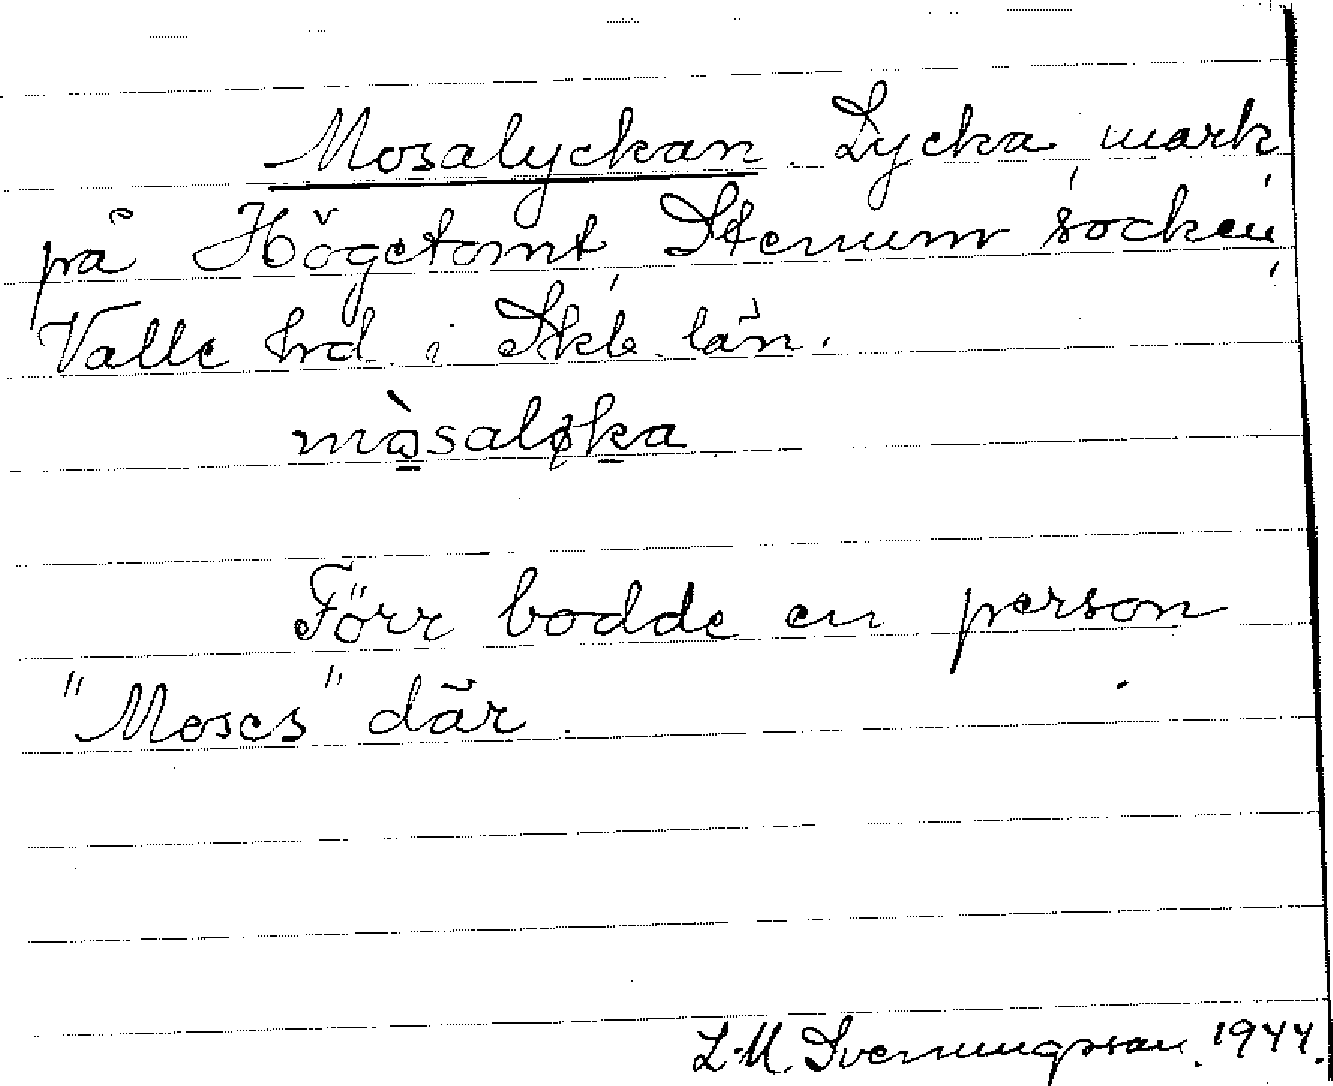 Mosalyckan. Lycka, mark,
på Högetomt, Stenum socken,
Valle hrd. i Skb. län.
mò̳saløḵa
Förr bodde en person
"Moses" där.
L. M. Svenungsson. 1944.